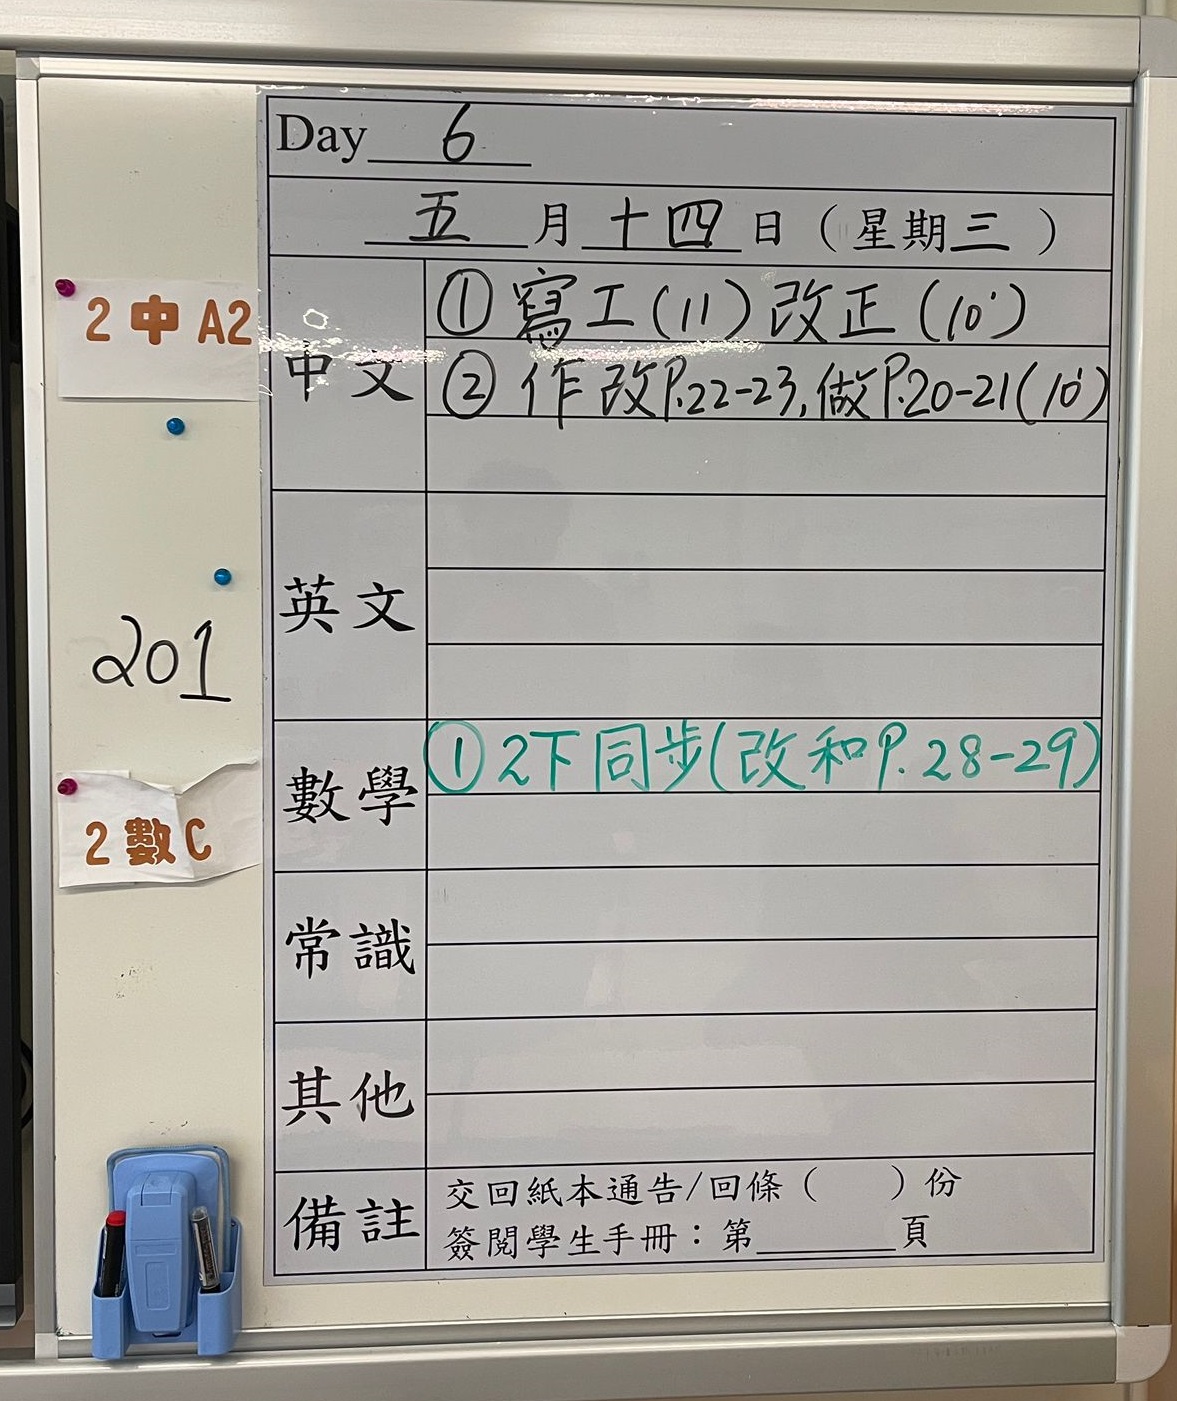 Day 6
五 月 十四 日（星期三）
2 中 A2
中文
① 寫工(11)改正(10')
② 作 改P.22-23,做P.20-21(10')
英文
201
數學
① 2下同步(改和P.28-29)
2 數 C
常識
其他
備註
交回紙本通告/回條（ ）份
簽閱學生手冊：第 頁